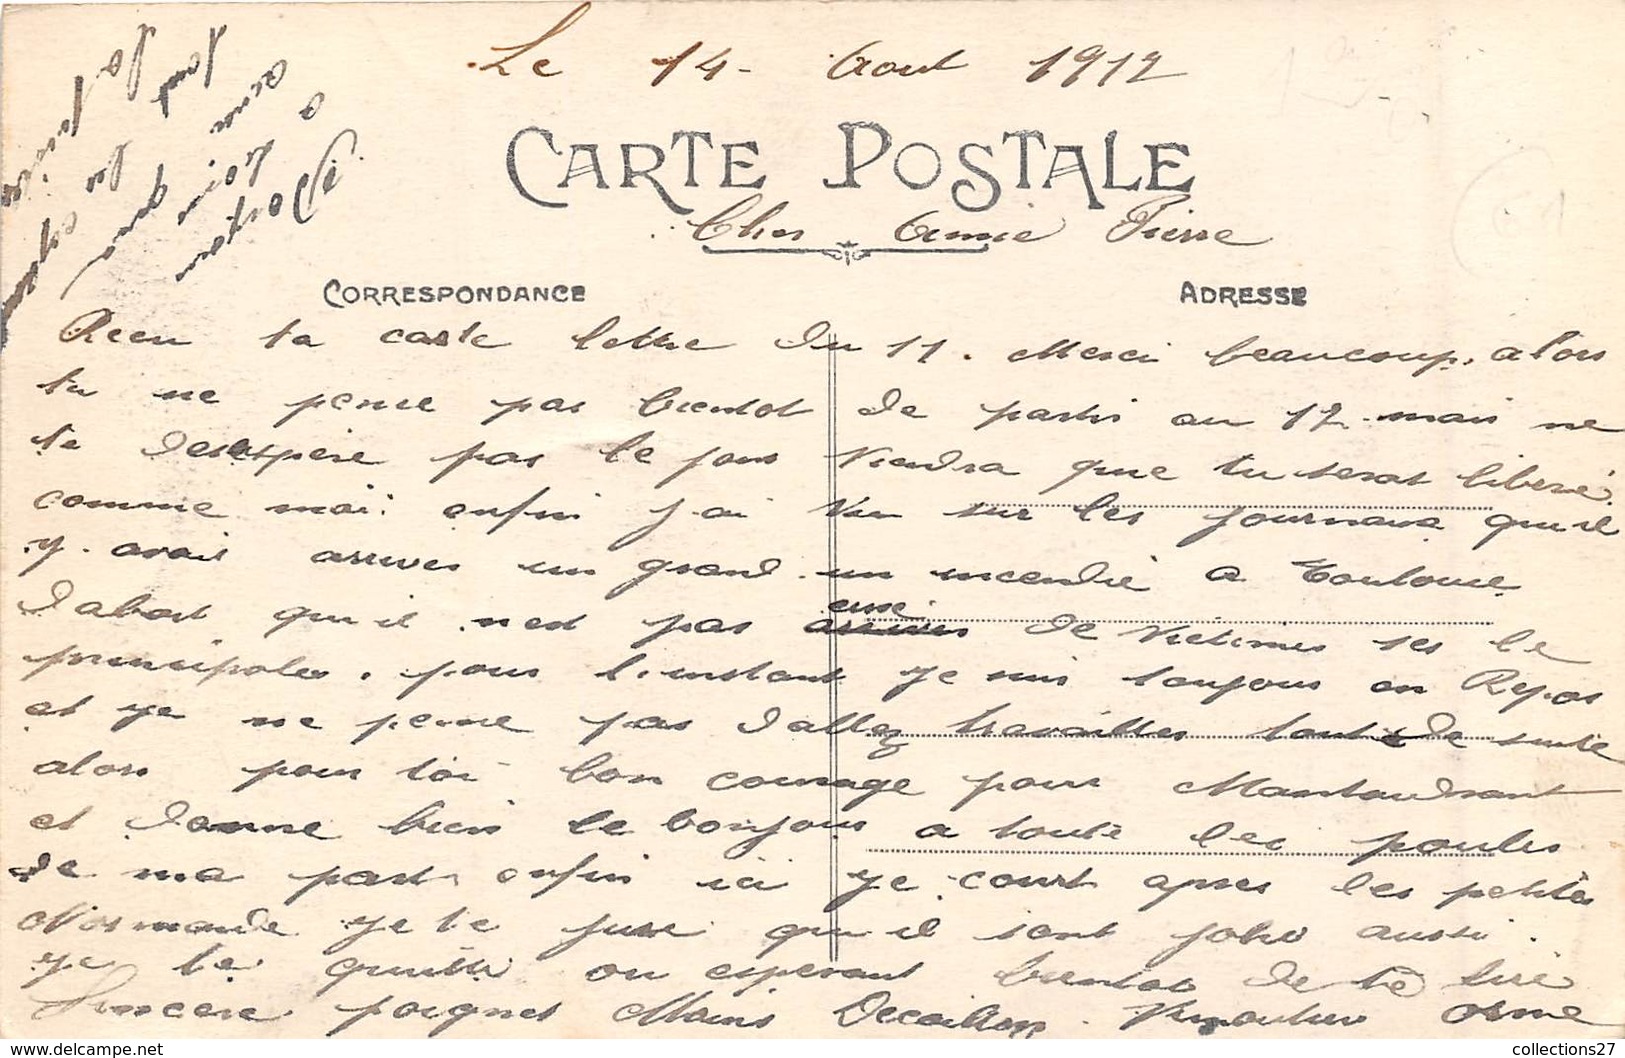 Le 14 - Aout 1912
CARTE POSTALE
Cher Amie Pierre
CORRESPONDANCE
ADRESSE
Recu ta carte lettre du 11. Merci beaucoup, alors
tu ne pense pas bientot de partir au 12 mais ne
te desespere pas le jour viendra que tu serat liberé
comme moi. enfin j ai vu sur les journaux qu il
y. avait arriver un grand un incendie a Toulouse
d abort qu il n est pas eusse de victimes ses le
principales. pour l instant je suis toujours en Repos
et je ne pense pas d allez travailler tout de suite
alors pour toi bon courage pour Montaudrant
et donne bien le bonjour a toute les poules
de ma part enfin ici je court apres les petites
Normande je te jure qu il sont jolie aussi.
je te quitte en esperant bientot de te lire
Sincere poignet Mains Vimoutier Orne
collections27